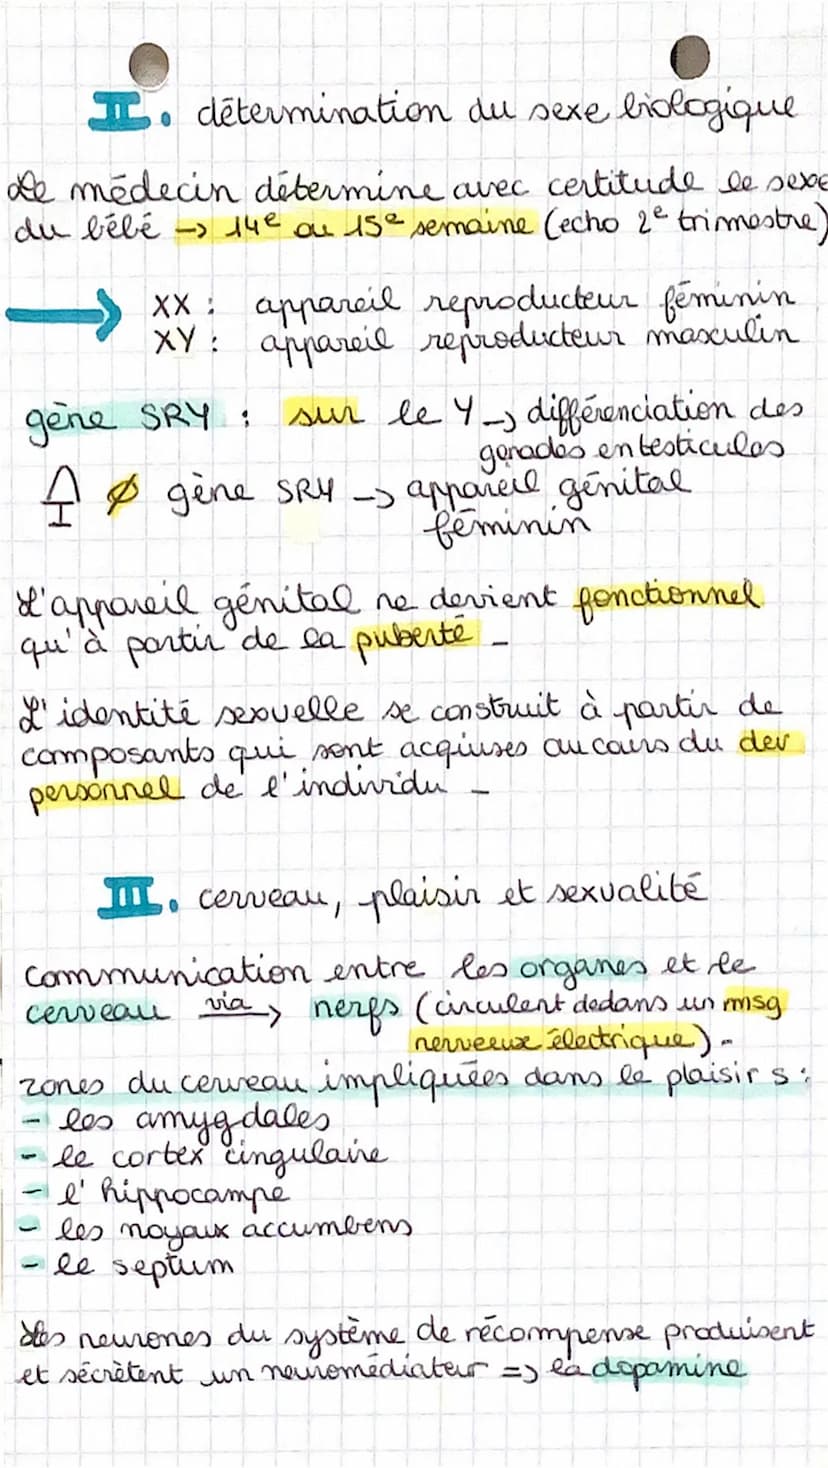 II. détermination du sexe biologique
Le médecin détermine avec certitude le sexe
du bébé -> 14e ou 15e semaine (echo 2e trimestre)
XX : appareil reproducteur féminin
XY : appareil reproducteur masculin
gène SRY : sur le Y -> différenciation des
gonades en testicules
Ø gène SRY -> appareil génital
féminin
L'appareil génital ne devient fonctionnel
qu'à partir de la puberté -
L'identité sexuelle se construit à partir de
composants qui sont acquises au cours du dev
personnel de l'individu -
III. cerveau, plaisir et sexualité
communication entre les organes et le
cerveau via -> nerfs (circulent dedans un msg
nerveux électrique) -
zones du cerveau impliquées dans le plaisir s :
- les amygdales
- le cortex cingulaire
- l'hippocampe
- les noyaux accumbens
- le septum
Les neurones du système de récompense produisent
et sécrètent un neuromédiateur => la dopamine